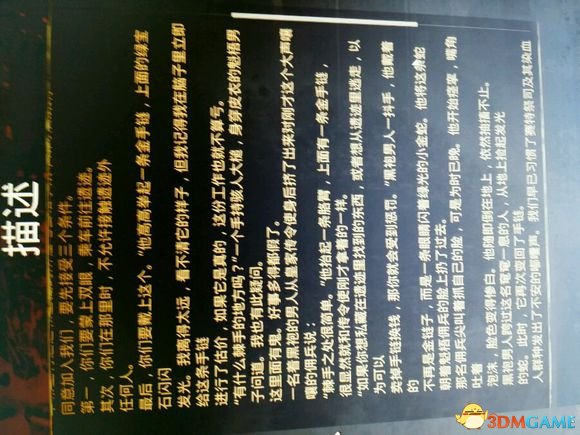 描述
同意加入我们，要先接受三个条件。
第一，你们要蒙上双眼，乘车前往遗迹。
其次，你们在那里时，不允许接触遗迹外
任何人。
最后，你们要戴上这个。"他高高举起一条金手链，上面的绿宝
石闪闪
发光。我离得太远，看不清它的样子，但我记得我在脑子里立即
给这条手链
进行了估价，如果它是真的，这份工作也就不算亏。
"有什么棘手的地方吗？"一个手持骇人大槌，身穿皮衣的魁梧男
子问道。我也有此疑问。
这里面有鬼。好事多得都假了。
一名着黑袍的男人从皇家传令使身后折了出来对刚才这个大声嚷
嚷的佣兵说：
"棘手之处很简单。"他抬起一条胳臂，上面有一条金手链，
很显然就和传令使刚才拿着的一样。
"如果你想私藏在遗迹里找到的东西，或者想从遗迹里逃走，以
为可以
卖掉手链换钱，那你就会受到惩罚。"黑袍男人一抖手，他戴着
的
不再是金链子，而是一条眼睛闪着绿光的小金蛇。他将这条蛇
朝着魁梧佣兵的脸上扔了过去。
那名佣兵尖叫着抓自己的脸，可是为时已晚。他开始痉挛，嘴角
吐着
泡沫，脸色变得惨白。他随即倒在地上，依然抽搐不止。
黑袍男人跨过这名奄奄一息的人，从地上捡起发光
的蛇。此时，它再次变回了手链。
人群种发出了不安的嘟囔声。我们早已习惯了赛特祭司及其染血
3DMGAME